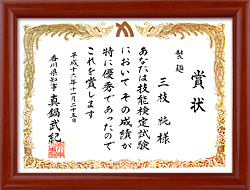 賞状
製麺
三枝 純様
あなたは技能検定試験
においてその成績が
特に優秀であったので
これを賞します
平成十六年十一月二十五日
香川県知事 真鍋武紀